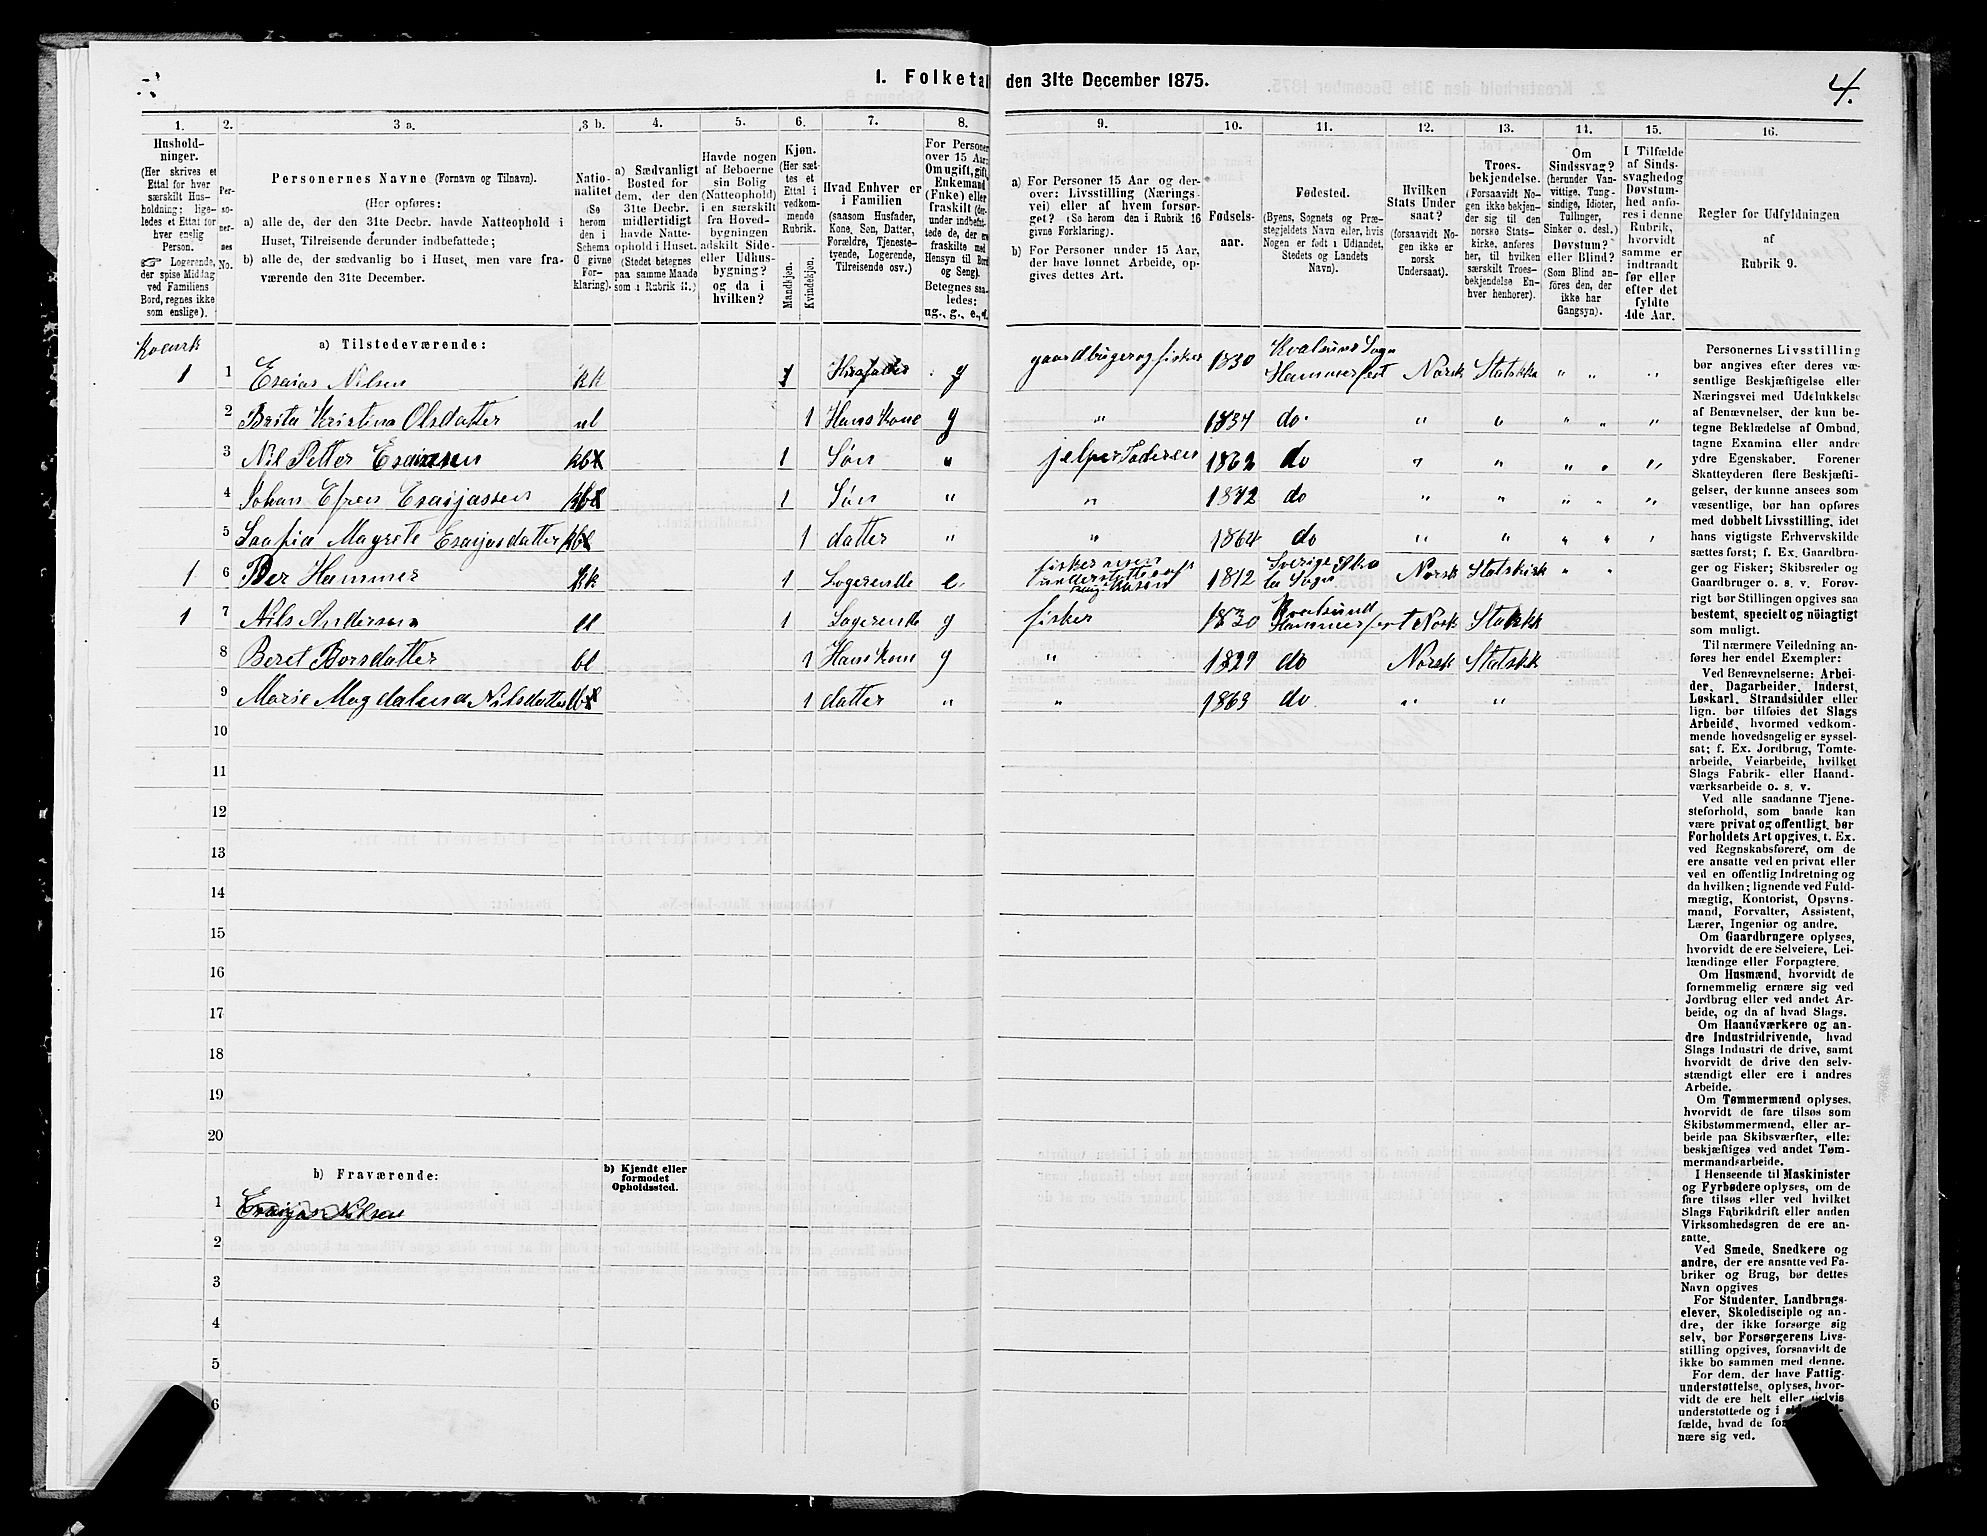 1. Folketal den 31te December 1875.
4.
1.
2.
3 a.
3 b.
4.
5.
6.
7.
8.
9.
10.
11.
12.
13.
14.
15.
16.
Hushold-
ninger.
(Her skrives et
Ettal for hver
særskilt Hus-
holdning; lige-
ledes et Ettal for
hver enslig
Person.
Logerende,
der spise Middag
ved Familiens
Bord, regnes ikke
som enslige).
Per-
so-
ner-
nes
No.
Personernes Navne (Fornavn og Tilnavn).
(Her opføres:
a) alle de, der den 31te Decbr. havde Natteophold i
Huset, Tilreisende derunder indbefattede;
b) alle de, der sædvanlig bo i Huset, men vare fra-
værende den 31te December.
Natio-
nalitet
(Se
herom
den i
Schema
O givne
For-
klaring).
a) Sædvanligt
Bosted for
dem, der den
31te Decbr.
midlertidigt
havde Natte-
ophold i Huset.
(Stedet betegnes
paa samme Maade
som i Rubrik 11.)
Havde nogen
af Beboerne
sin Bolig
(Natteophold)
i en særskilt
fra Hoved-
bygningen
adskilt Side-
eller Udhus-
bygning?
og da i
hvilken?
Kjøn.
(Her sæt-
tes et
Ettal i
vedkom-
mende
Rubrik.
Mandkjøn.
Kvindekjøn.
Hvad Enhver er
i Familien
(saasom Husfader,
Kone, Søn, Datter,
Forældre, Tjeneste-
tyende, Logerende,
Tilreisende osv.)
For Personer
over 15 Aar:
Om ugift, gift,
Enkemand
(Enke) eller
fraskilt (der-
under indbefat-
tede de, der ere
fraskilte med
Hensyn til Bord
og Seng).
Betegnes saa-
ledes:
ug., g., e., f.
a) For Personer 15 Aar og der-
over: Livsstilling (Nærings-
vei) eller af hvem forsør-
get? (Se herom den i Rubrik 16
givne Forklaring).
b) For Personer under 15 Aar,
der have lønnet Arbeide, op-
gives dettes Art.
Fødsels-
aar.
Fødested.
(Byens, Sognets og Præ-
stegjeldets Navn eller, hvis
Nogen er født i Udlandet,
Stedets og Landets
Navn).
Hvilken
Stats Under
saat?
(forsaavidt No-
gen ikke er
norsk
Undersaat).
Troes-
bekjendelse.
(Forsaavidt No-
gen ikke bekjen-
der sig til den
norske Stats-
kirke, anføres
her, til hvilken
særskilt Troes-
bekjendelse En-
hver henhorer).
Om
Sindssvag?
(herunder Van-
vittige, Tung-
sindige, Idioter,
Tullinger,
Sinker o. desl.)
Døvstum?
eller Blind?
(Som Blind an-
føres den, der
ikke har
Gangsyn).
I Tilfælde
af Sinds-
svaghed og
Døvstum-
hed anfø-
res i denne
Rubrik,
hvorvidt
samme er
indtraadt
før eller
efter det
fyldte
4de Aar.
Regler for Udfyldningen
af
Rubrik 9.
a) Tilstedeværende:
1 1 Esaias Nilsen kk 1 g gaardbruger og fisker 1830 Kvalsund Sogn Hammerfest Norsk Statskk " " "
2 Brita Kristina Olsdatter nl 1 Hans Kone g " 1834 do. " " " " "
3 Nil Petter Esaiasen 1 Søn " 1862 do " " " " "
4 Johan Efren Esaijassen 1 Søn " " 1872 do " " " " "
5 Saafia Magrete Esaijasdatter 1 datter " " 1864 do " " " " "
1 6 Per Hammer kk 1 Logerende e fisker 1812 Sverige Sogn Norsk Statskirk " "
1 7 Nils Andersen 1 Logerende g fisker 1830 Kvalsund Hammerfest Norsk Statskk
8 Beret Borsdatter bl 1 Hans Kone g " 1829 do Norsk Statskk
9 Marie Magdalena Nilsdatter 1 datter " " 1863 do " "
10
11
12
13
14
15
16
17
18
19
20
b) Fraværende:
b) Kjendt eller
formodet
Opholdssted.
1 Esaijas Nilsen
2
3
4
5
6
Personernes Livsstilling
bør angives efter deres væ-
sentlige Beskjæftigelse eller
Næringsvei med Udelukkelse
af Benævnelser, der kun be-
tegne Beklædelse af Ombud,
tagne Examina eller andre
ydre Egenskaber. Forener
Skatteyderen flere Beskjæfti-
gelser, der kunne ansees som
væsentlige, bør han opføres
med dobbelt Livsstilling, idet
hans vigtigste Erhvervskilde
sættes først; f. Ex. Gaardbru-
ger og Fisker; Skibsreder og
Gaardbruger o. s. v. Forøv-
rigt bør Stillingen opgives saa
bestemt, specielt og nöiagtigt
som muligt.
Til nærmere Veiledning an-
føres her endel Exempler:
Ved Benævnelserne: Arbei-
der, Dagarbeider, Inderst,
Løskarl, Strandsidder eller
lign. bør tilføies det Slags
Arbeide, hvormed vedkom-
mende hovedsagelig er syssel-
sat; f. Ex. Jordbrug, Tomte-
arbeide, Veiarbeide, hvilket
Slags Fabrik- eller Haand-
værksarbeide o. s. v.
Ved alle saadanne Tjene-
steforhold, som baade kan
være privat og offentligt, bør
Forholdets Art opgives, t. Ex.
ved Regnskabsførere, om de
ere ansatte ved en privat eller
ved en offentlig Indretning og
da hvilken; lignende ved Fuld-
mægtig, Kontorist, Opsyns-
mand, Forvalter, Assistent,
Lærer, Ingeniør og andre.
Om Gaardbrugere oplyses,
hvorvidt de ere Selveiere, Lei-
lændinge eller Forpagtere.
Om Husmænd, hvorvidt de
fornemmelig ernære sig ved
Jordbrug eller ved andet Ar-
beide, og da af hvad Slags.
Om Haandværkere og an-
dre Industridrivende, hvad
Slags Industri de drive, samt
hvorvidt de drive den selv-
stændigt eller ere i andres
Arbeide.
Om Tømmermænd oplyses,
hvorvidt de fare tilsøs som
Skibstømmermænd, eller ar-
beide paa Skibsværfter, eller
beskjæftiges ved andet Tøm-
mermandsarbeide.
I Henseende til Maskinister
og Fyrbødere oplyses, om de
fare tilsøs eller ved hvilket
Slags Fabrikdrift eller anden
Virksomhedsgren de ere an-
satte.
Ved Smede, Snedkere og
andre, der ere ansatte ved Fa-
briker og Brug, bør dettes
Navn opgives
For Studenter, Landbrugs-
elever, Skoledisciple og an-
dre, der ikke forsørge sig
selv, bør Forsørgerens Livs-
stilling opgives, forsaavidt de
ikke bo sammen med denne.
For dem, der have Fattig-
understøttelse, oplyses, hvor-
vidt de ere helt eller delvis
understøttede og i
fælde, hvad de
nære sig ved.